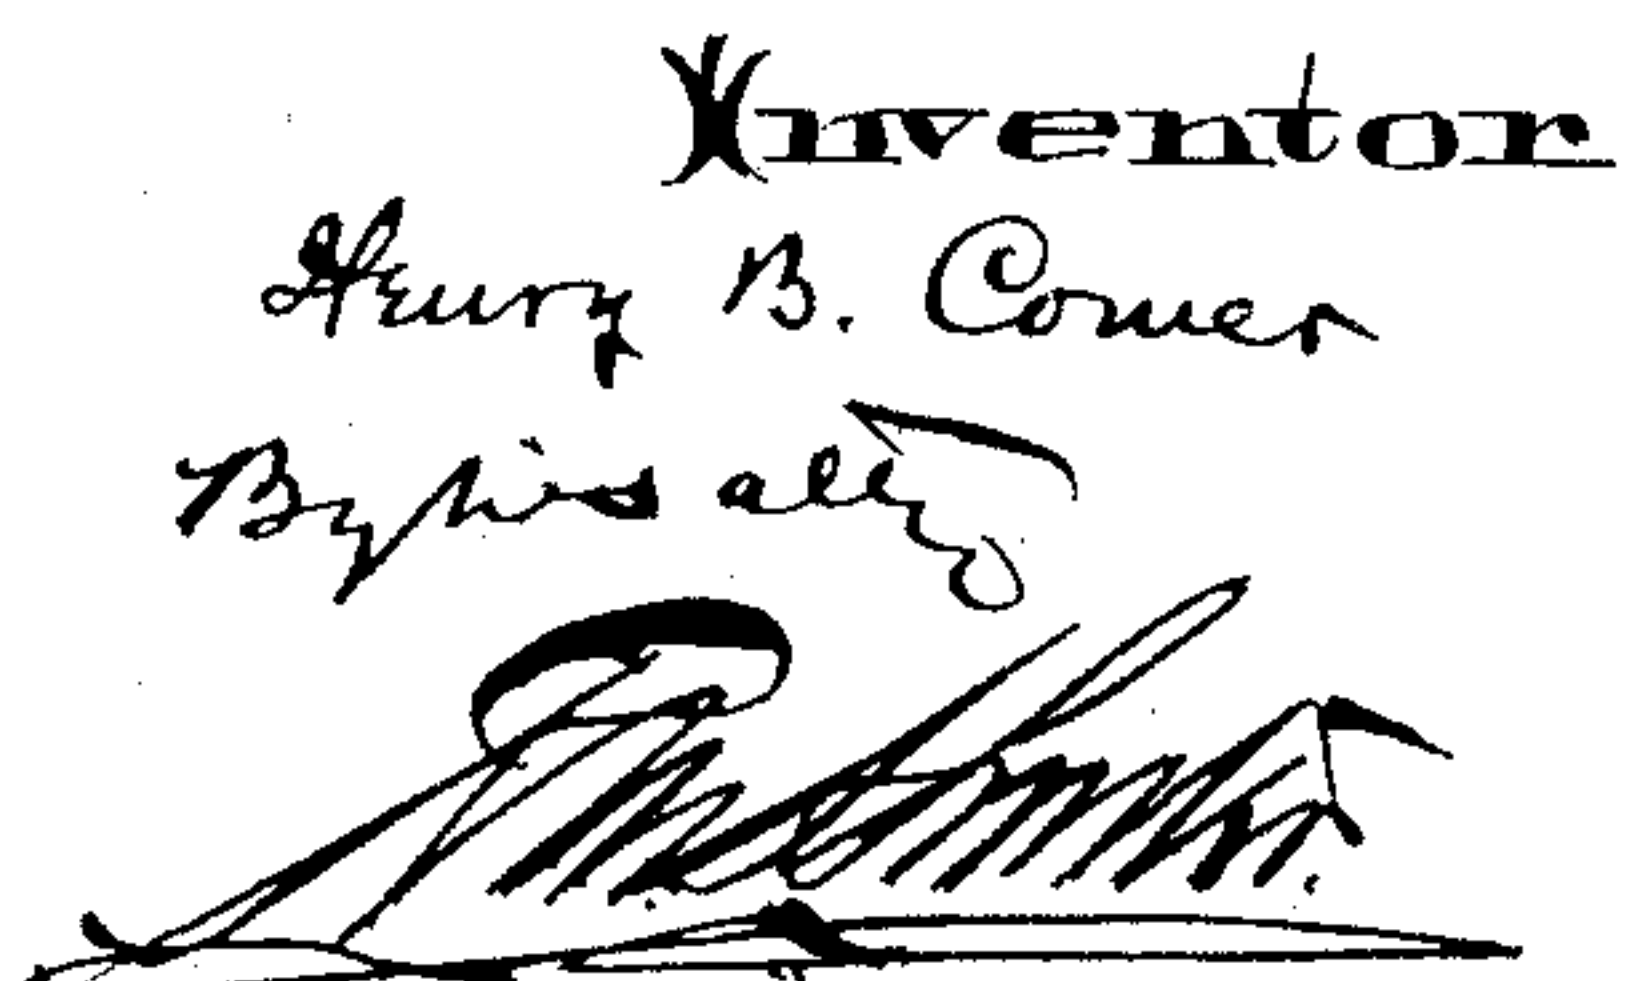 Inventor
Henry B. Comer
By his atty